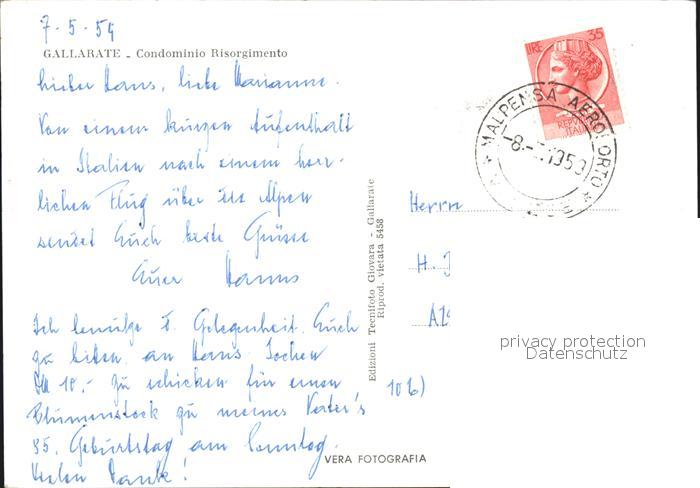 7-5-59
GALLARATE - Condominio Risorgimento
Lieber Hans, liebe Marianne.
Von einem kurzen Aufenthalt
in Italien nach einem herr-
lichen Flug über die Alpen
sendet Euch beste Grüsse
Euer Hanns
Ich benütze d. Gelegenheit Euch
zu bitten an Hans Jochen
DM 10.- zu schicken für einen
Blumenstock zu meines Vater's
85. Geburtstag am Sonntag.
Vielen Dank!
VERA FOTOGRAFIA
Edizioni Tecnifoto Giovara - Gallarate
Riprod. vietata 5458
LIRE 35
REPVBBLICA
ITALIANA
MALPENSA AEROPORTO
-8.- 1959
Herrn
H.
106)
privacy protection
Datenschutz